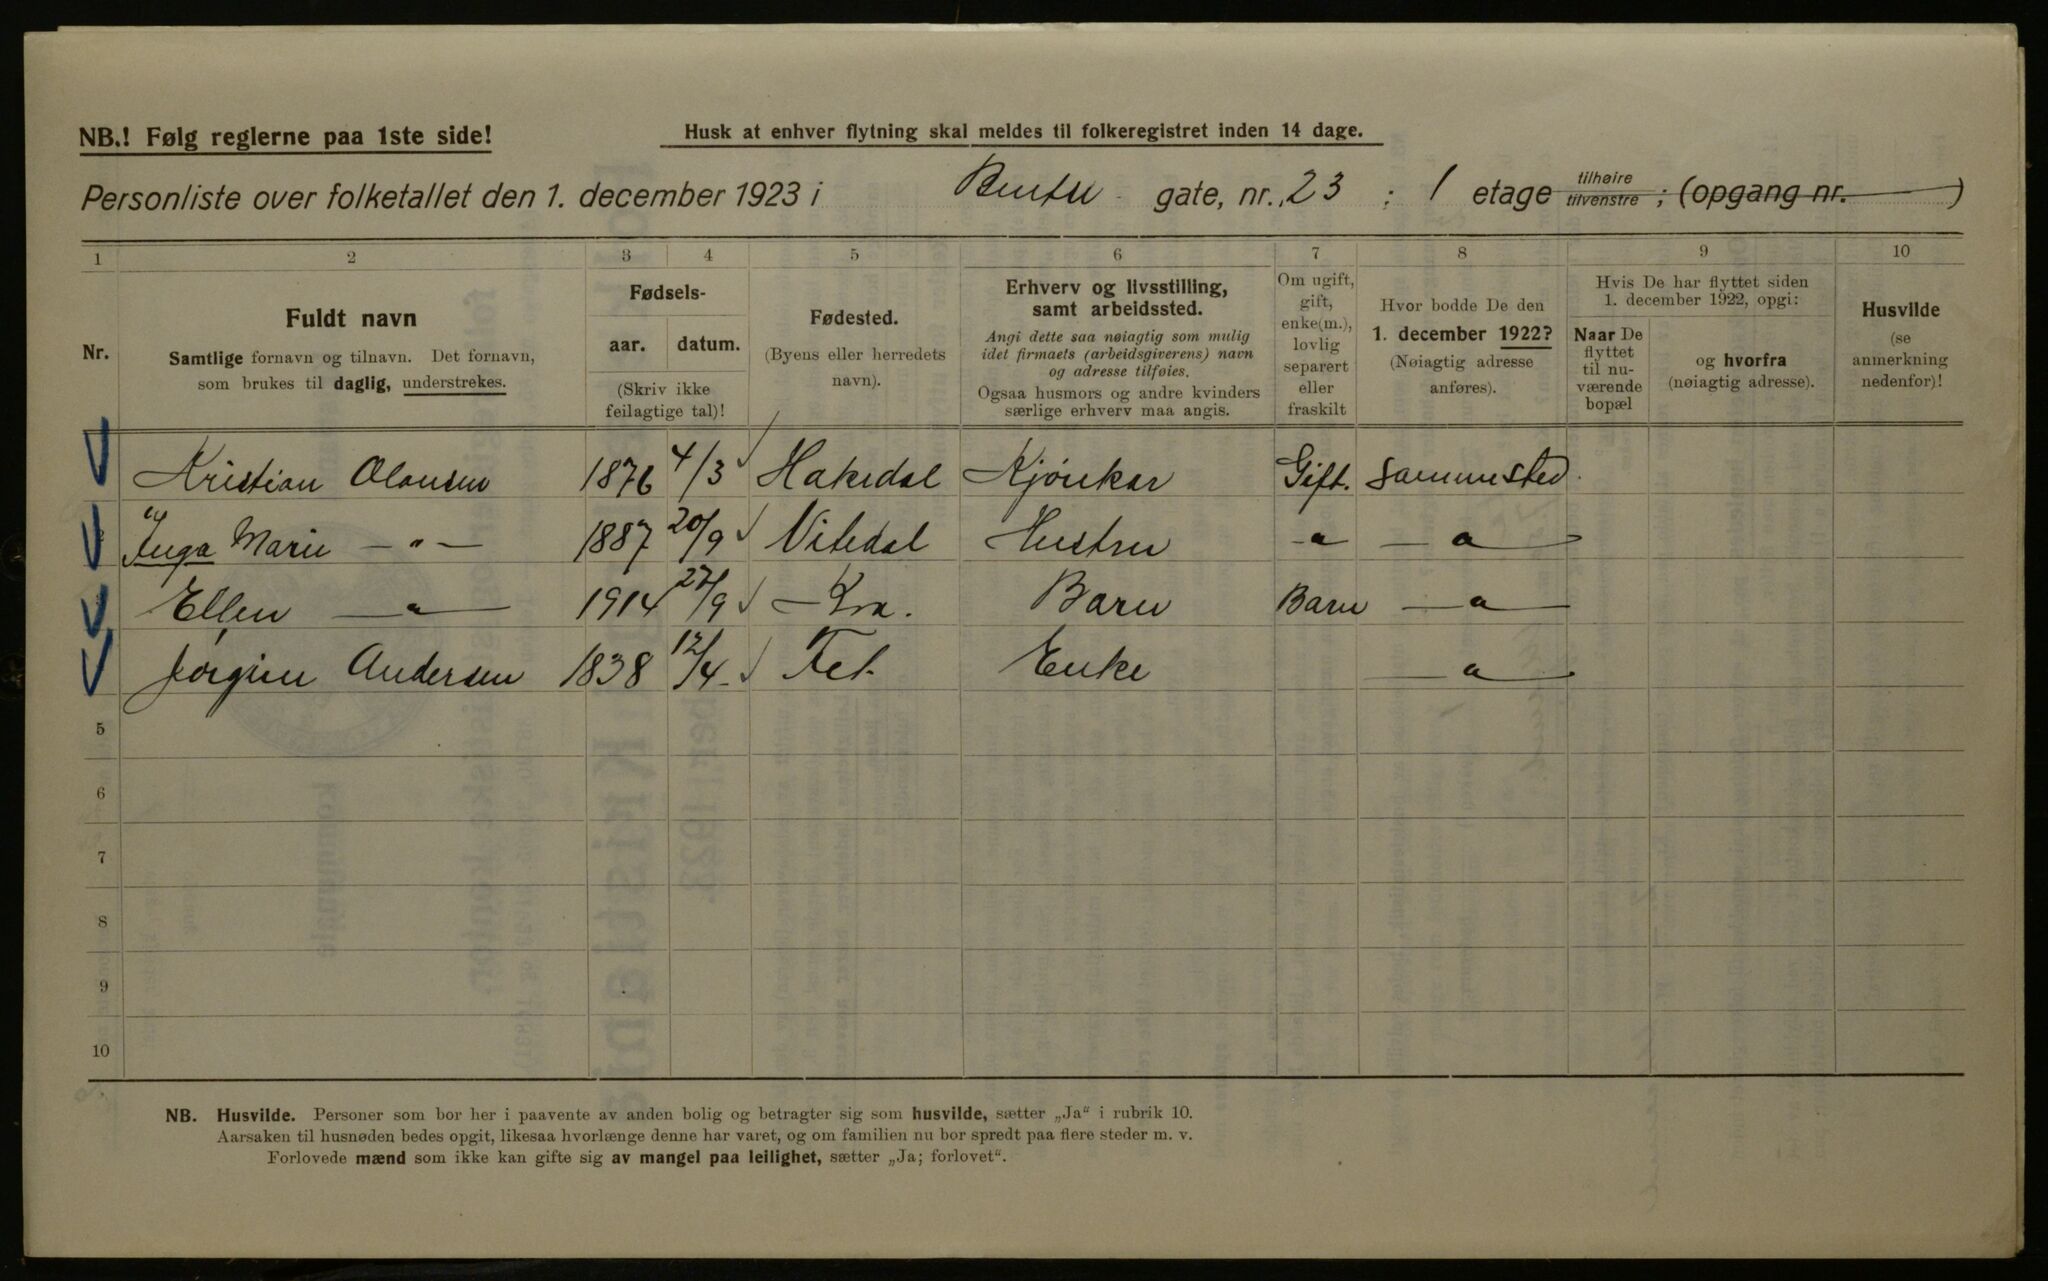 NB.! Følg reglerne paa 1ste side!
Husk at enhver flytning skal meldes til folkeregistret inden 14 dage.
Personliste over folketallet den 1. december 1923 i Bentse gate, nr. 23 ; 1 etage tilhøire tilvenstre ; (opgang nr. )
1 2 3 4 5 6 7 8 9 10
Nr.
Fuldt navn
Samtlige fornavn og tilnavn. Det fornavn,
som brukes til daglig, understrekes.
Fødsels-
aar. datum.
(Skriv ikke
feilagtige tal)!
Fødested.
(Byens eller herredets
navn).
Erhverv og livsstilling,
samt arbeidssted.
Angi dette saa nøiagtig som mulig
idet firmaets (arbeidsgiverens) navn
og adresse tilføies.
Ogsaa husmors og andre kvinders
særlige erhverv maa angis.
Om ugift,
gift,
enke(m.),
lovlig
separert
eller
fraskilt
Hvor bodde De den
1. december 1922?
(Nøiagtig adresse
anføres).
Hvis De har flyttet siden
1. december 1922, opgi:
Naar De
flyttet
til nu-
værende
bopæl
og hvorfra
(nøiagtig adresse).
Husvilde
(se
anmerkning
nedenfor)!
Kristian Olausen 1876 4/3 Hakedal Kjørekar Gift. Sammested.
Inga Marie — " — 1887 20/9 Nitedal Hustru — " — " —
Ellen — " — 1914 27/9 Kra. Barn Barn — " —
Jørgine Andersen 1838 12/4 Fet. Enke — " —
5
6
7
8
9
10
NB. Husvilde. Personer som bor her i paavente av anden bolig og betragter sig som husvilde, sætter „Ja“ i rubrik 10.
Aarsaken til husnøden bedes opgit, likesaa hvorlænge denne har varet, og om familien nu bor spredt paa flere steder m. v.
Forlovede mænd som ikke kan gifte sig av mangel paa leilighet, sætter „Ja; forlovet“.